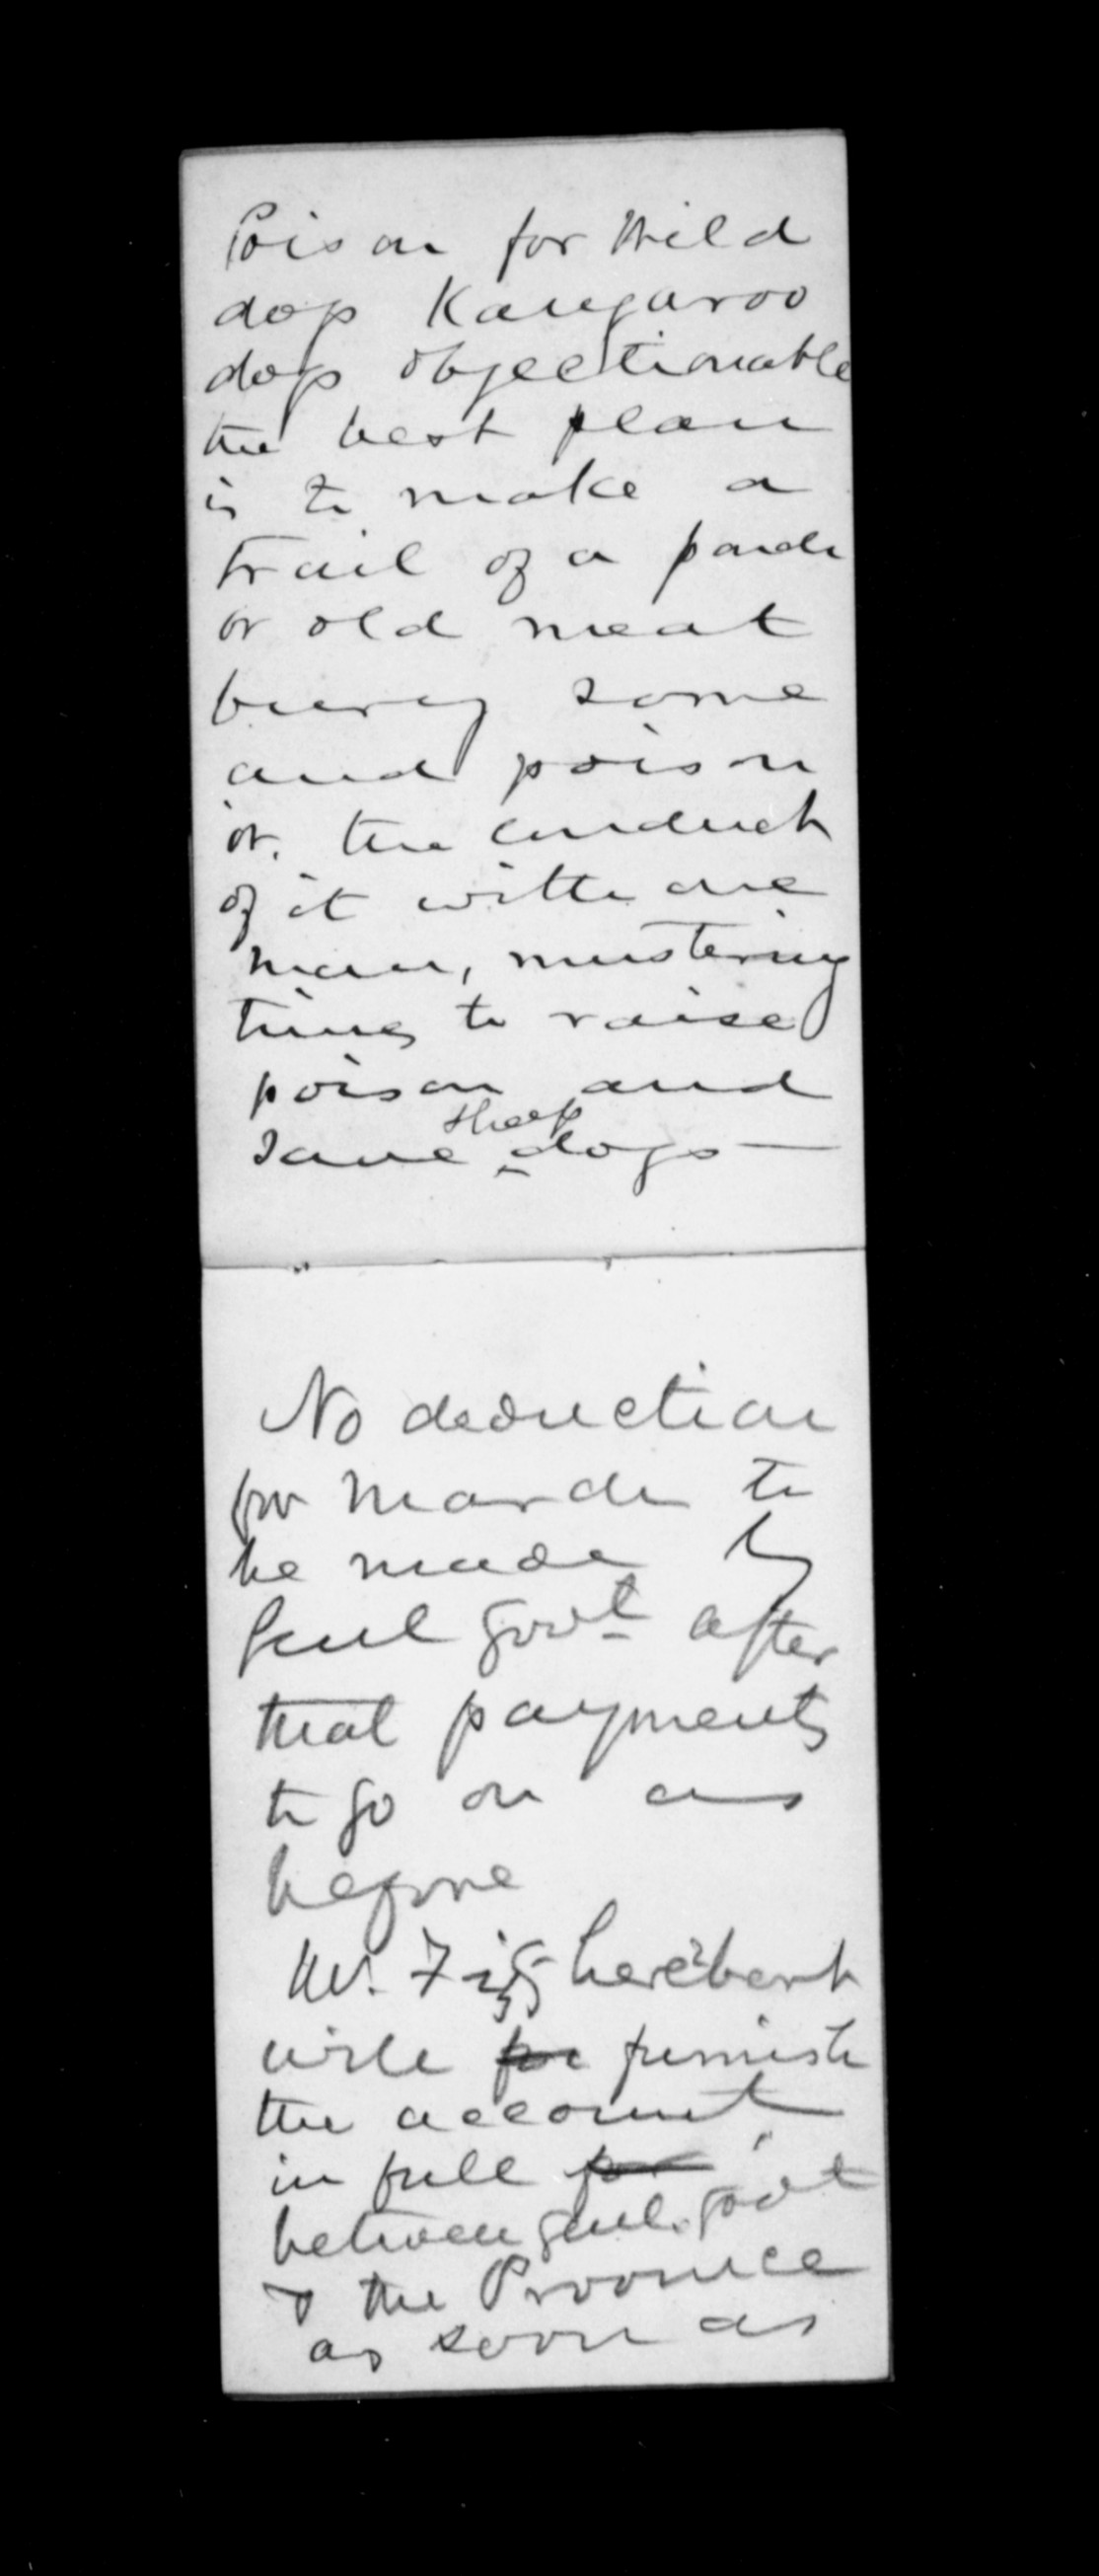 Poison for Wild
dogs Kangaroo
dogs objectionable
the best plan
is to make a
trail of a
or old meat
bury some
and poison
or. the conduct
of it with one
man, mustering
times to raise
poison and
save sheep dogs —
No deduction
for March to
be made by
Genl Govt after
that payments
to go on as
before
Mr. Fitzherbert
will furnish
the account
in full
between Genl. Govt
& the Province
as soon as